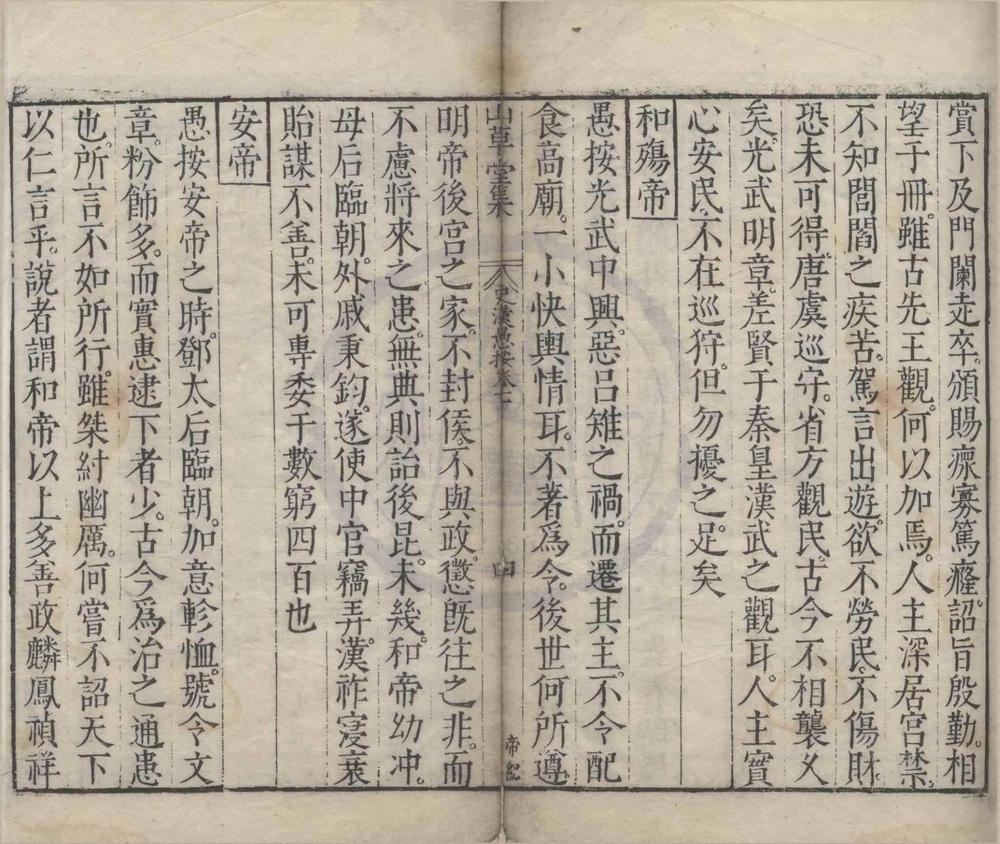 賞下及門闌走卒。頒賜瘝寡篤癃。詔旨殷勤。相
望于冊。雖古先王觀。何以加焉。人主深居宮禁。
不知閭閻之疾苦。駕言出遊。欲不勞民。不傷財。
恐未可得。唐虞巡守。省方觀民。古今不相襲乆
矣。光武明章。差賢于秦皇漢武之觀耳。人主實
心安民。不在巡狩。但勿擾之足矣
和殤帝
愚按光武中興。惡呂雉之禍。而遷其主。不令配
食高廟。一小快輿情耳。不著為令。後世何所遵
山草堂集
史漢愚按卷七
四
帝紀
明帝後宮之家。不封侯。不與政。懲旣往之非。而
不慮將來之患。無典則詒後昆。未幾。和帝幼冲。
母后臨朝。外戚秉鈞。遂使中官竊弄。漢祚寖衰
貽謀不善。未可專委于數窮四百也
安帝
愚按安帝之時。鄧太后臨朝。加意軫恤。號令文
章。粉飾多。而實惠逮下者少。古今為治之通患
也。所言不如所行。雖桀紂幽厲。何嘗不詔天下
以仁言乎。說者謂和帝以上多善政麟鳳禎祥